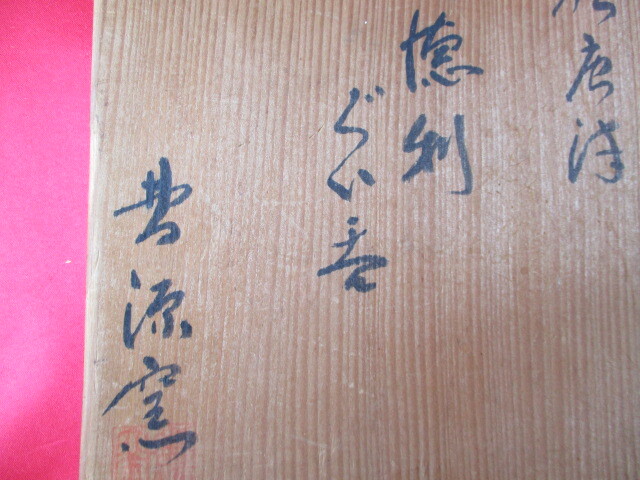 唐津
徳利
ぐい呑
曹源窯